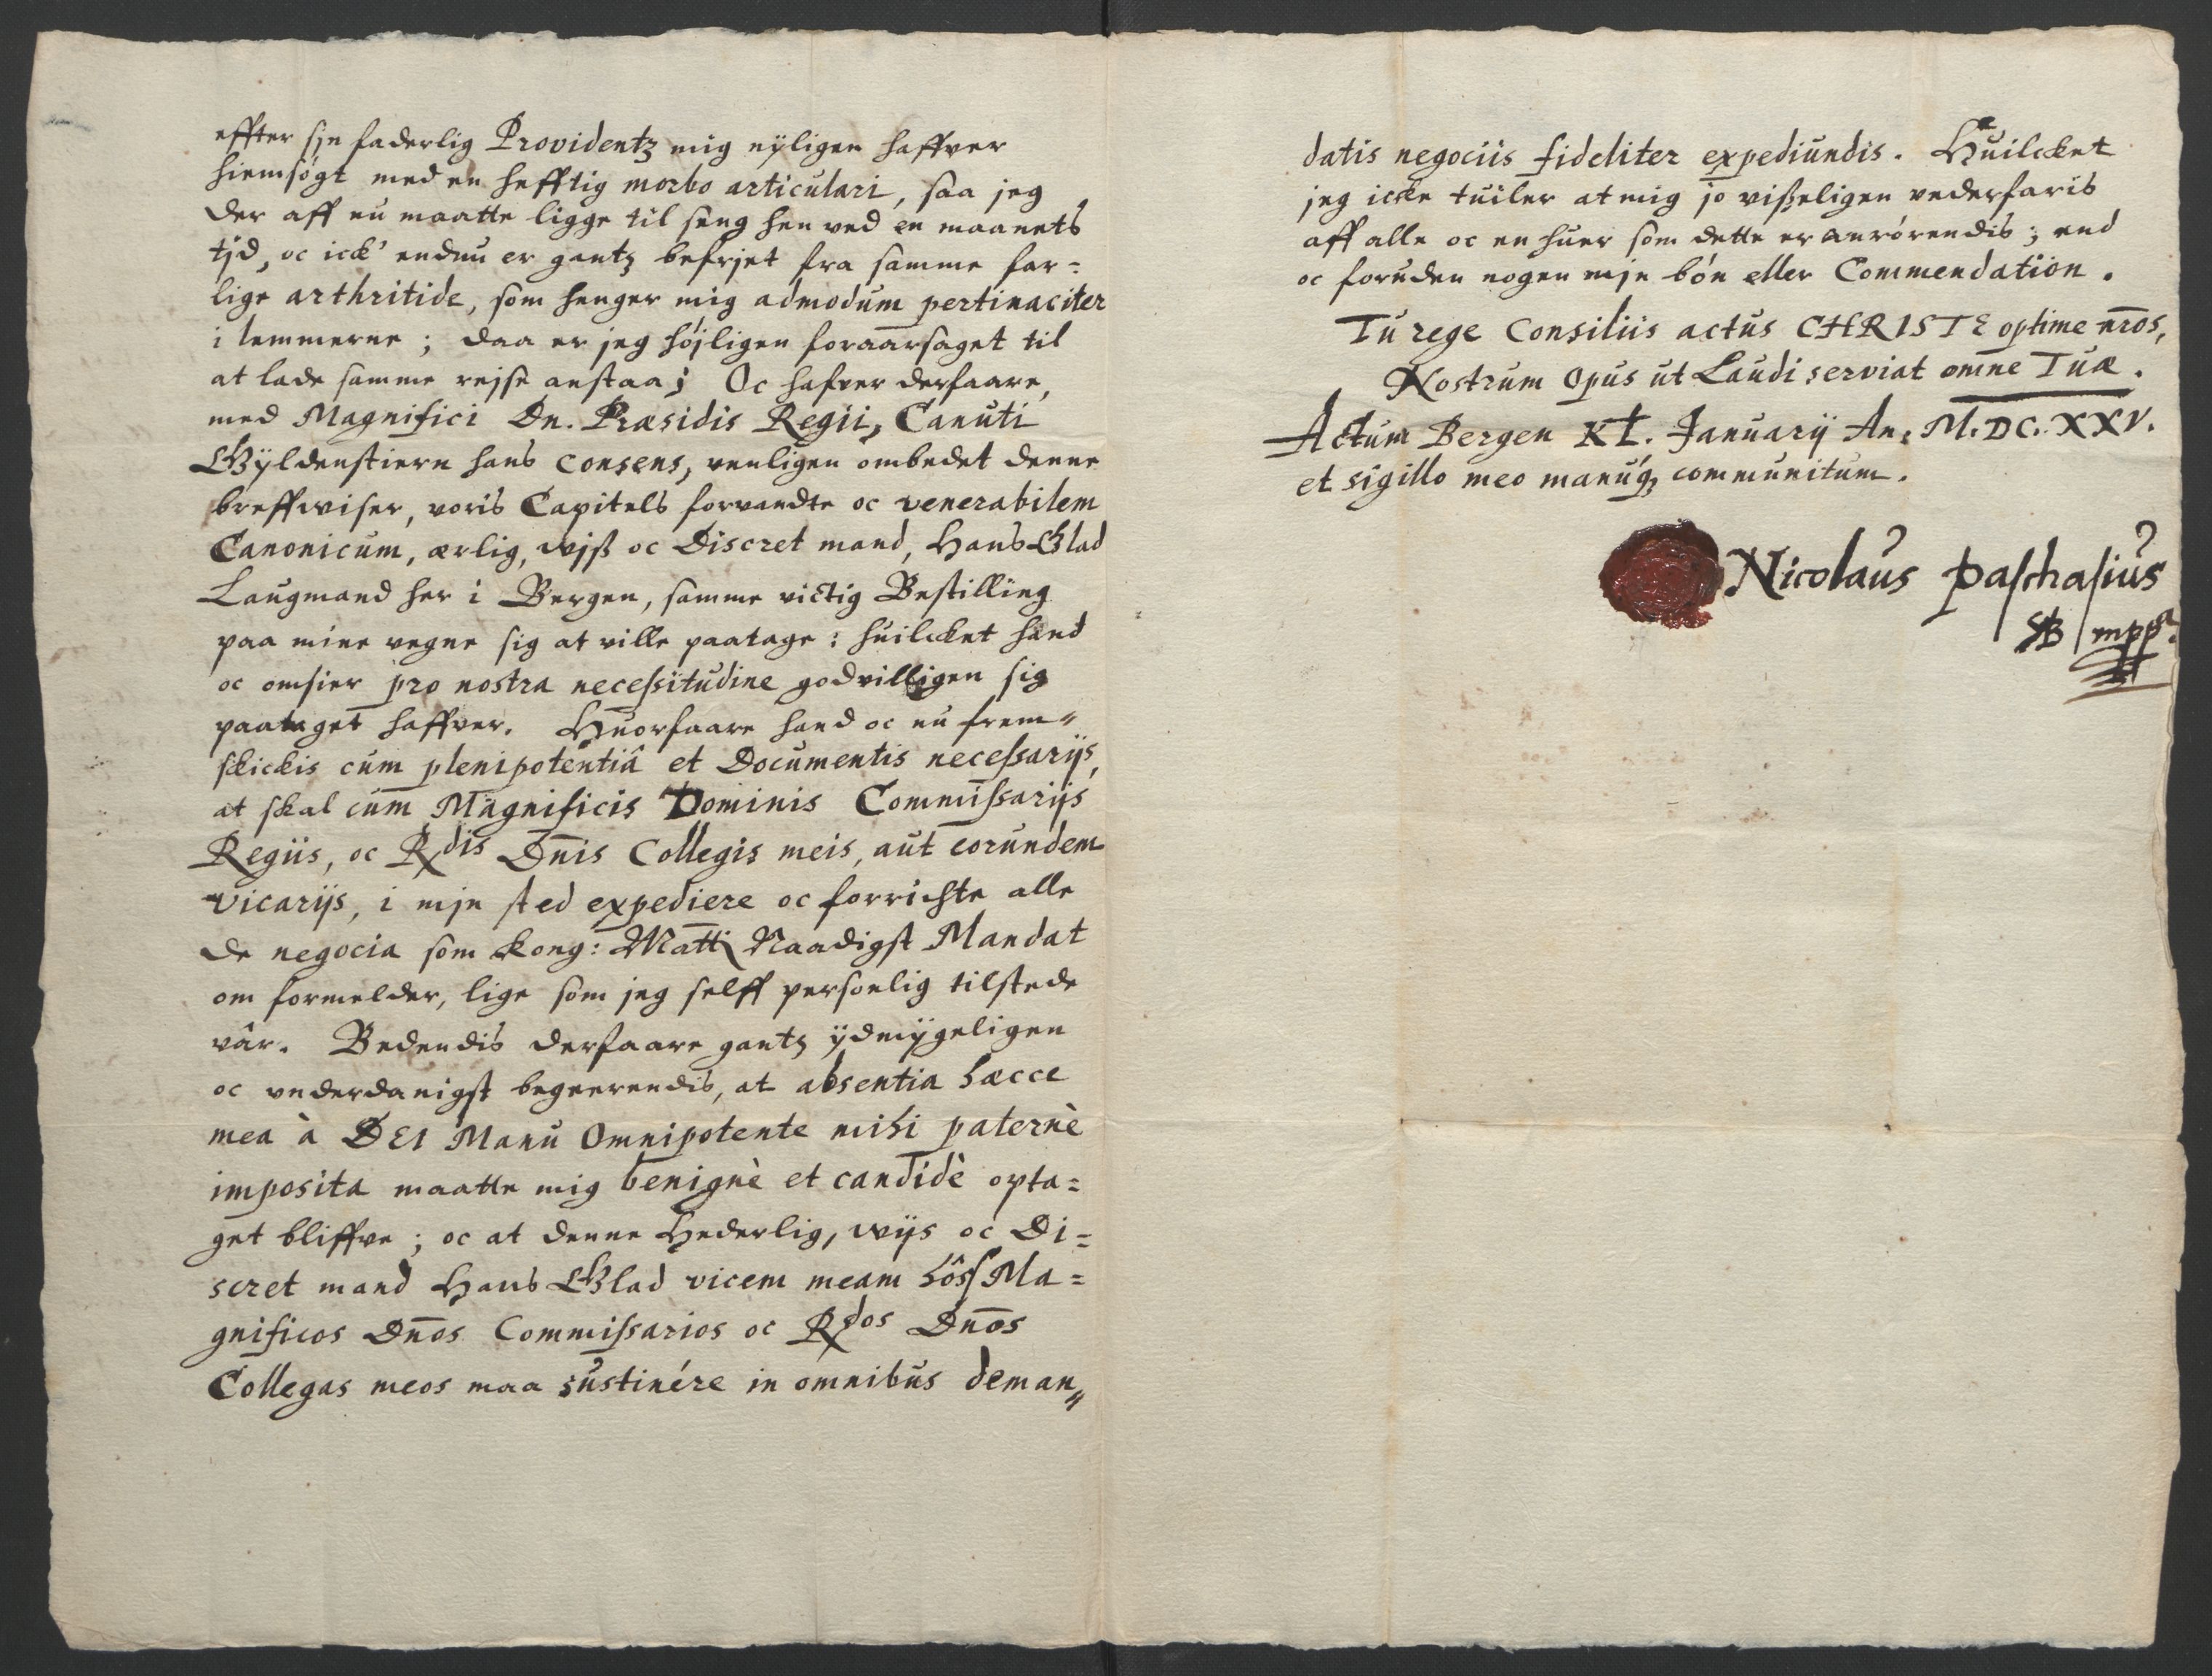 effter sjn faderlig Providentz mig nyligen haffver
hiemsøgt med en hefftig morbo articulari, saa jeg
der aff nu maatte ligge til seng hen ved en maanets
tjd, oc ick' endnu er gantz befrjet fra samme far=
lige arthritide, som henger mig admodum pertinaciter
i lemmerne; daa er jeg højligen foraarsaget til
at lade samme rejse anstaa; Oc hafver derfaare,
med Magnifici Dn. Præsidis Regii, Canuti
Gÿldenstiern hans consens, venligen ombedet denne
breffwiser, voris Capitels forvandte oc venerabilem
Canonicum, ærlig, wjß oc Discret mand, Hans Glad
Laugmand her i Bergen, samme victig Bestilling
paa mine vegne sig at ville paatage: huilcket hand
oc omsier pro nostra necessitudine godvilligen sig
paataget haffver. Huorfaare hand oc nu frem=
skickis cum plenipotentiâ et Documentis necessarijs,
at skal cum Magnificis Dominis Commissarijs
Regiis, oc Rdis Dn̄is Collegis meis, aut eorundem
vicarijs, i mjn sted expediere oc forrichte alle
de negocia som Kong: Matti Naadigst Mandat
om formelder, lige som jeg selff personlig tilstede
vâr. Bedendis derfaare gantz ÿdmÿgeligen
oc underdanigst begeerendis, at absentia hæcce
mea à DEI Manu Omnipotente mihi paternè
imposita maatte mig benignè et candidè opta=
get bliffve; oc at denne Hederlig, wijs oc Di=
scret mand Hans Glad vicem meam hôss Ma=
gnificos Dn̄os Commissarios oc Rdos Dn̄os
Collegas meos maa sustinére in omnibus deman=
datis negociis fideliter expediundis. Huilcket
jeg icke tuiler at mig jo visseligen vederfaris
aff alle oc en huer som dette er anrørendis; end
oc foruden nogen mjn bøn eller Commendation.
Tu rege Consiliis actus CHRISTE optime nr̄os,
Nostrum Opus ut Laudi serviat omne Tuæ.
Actum Bergen Kł. Januarij An: M.DC.XXV.
et sigillo meo manuq; communitum.
Nicolaus Paschasius
mpp.